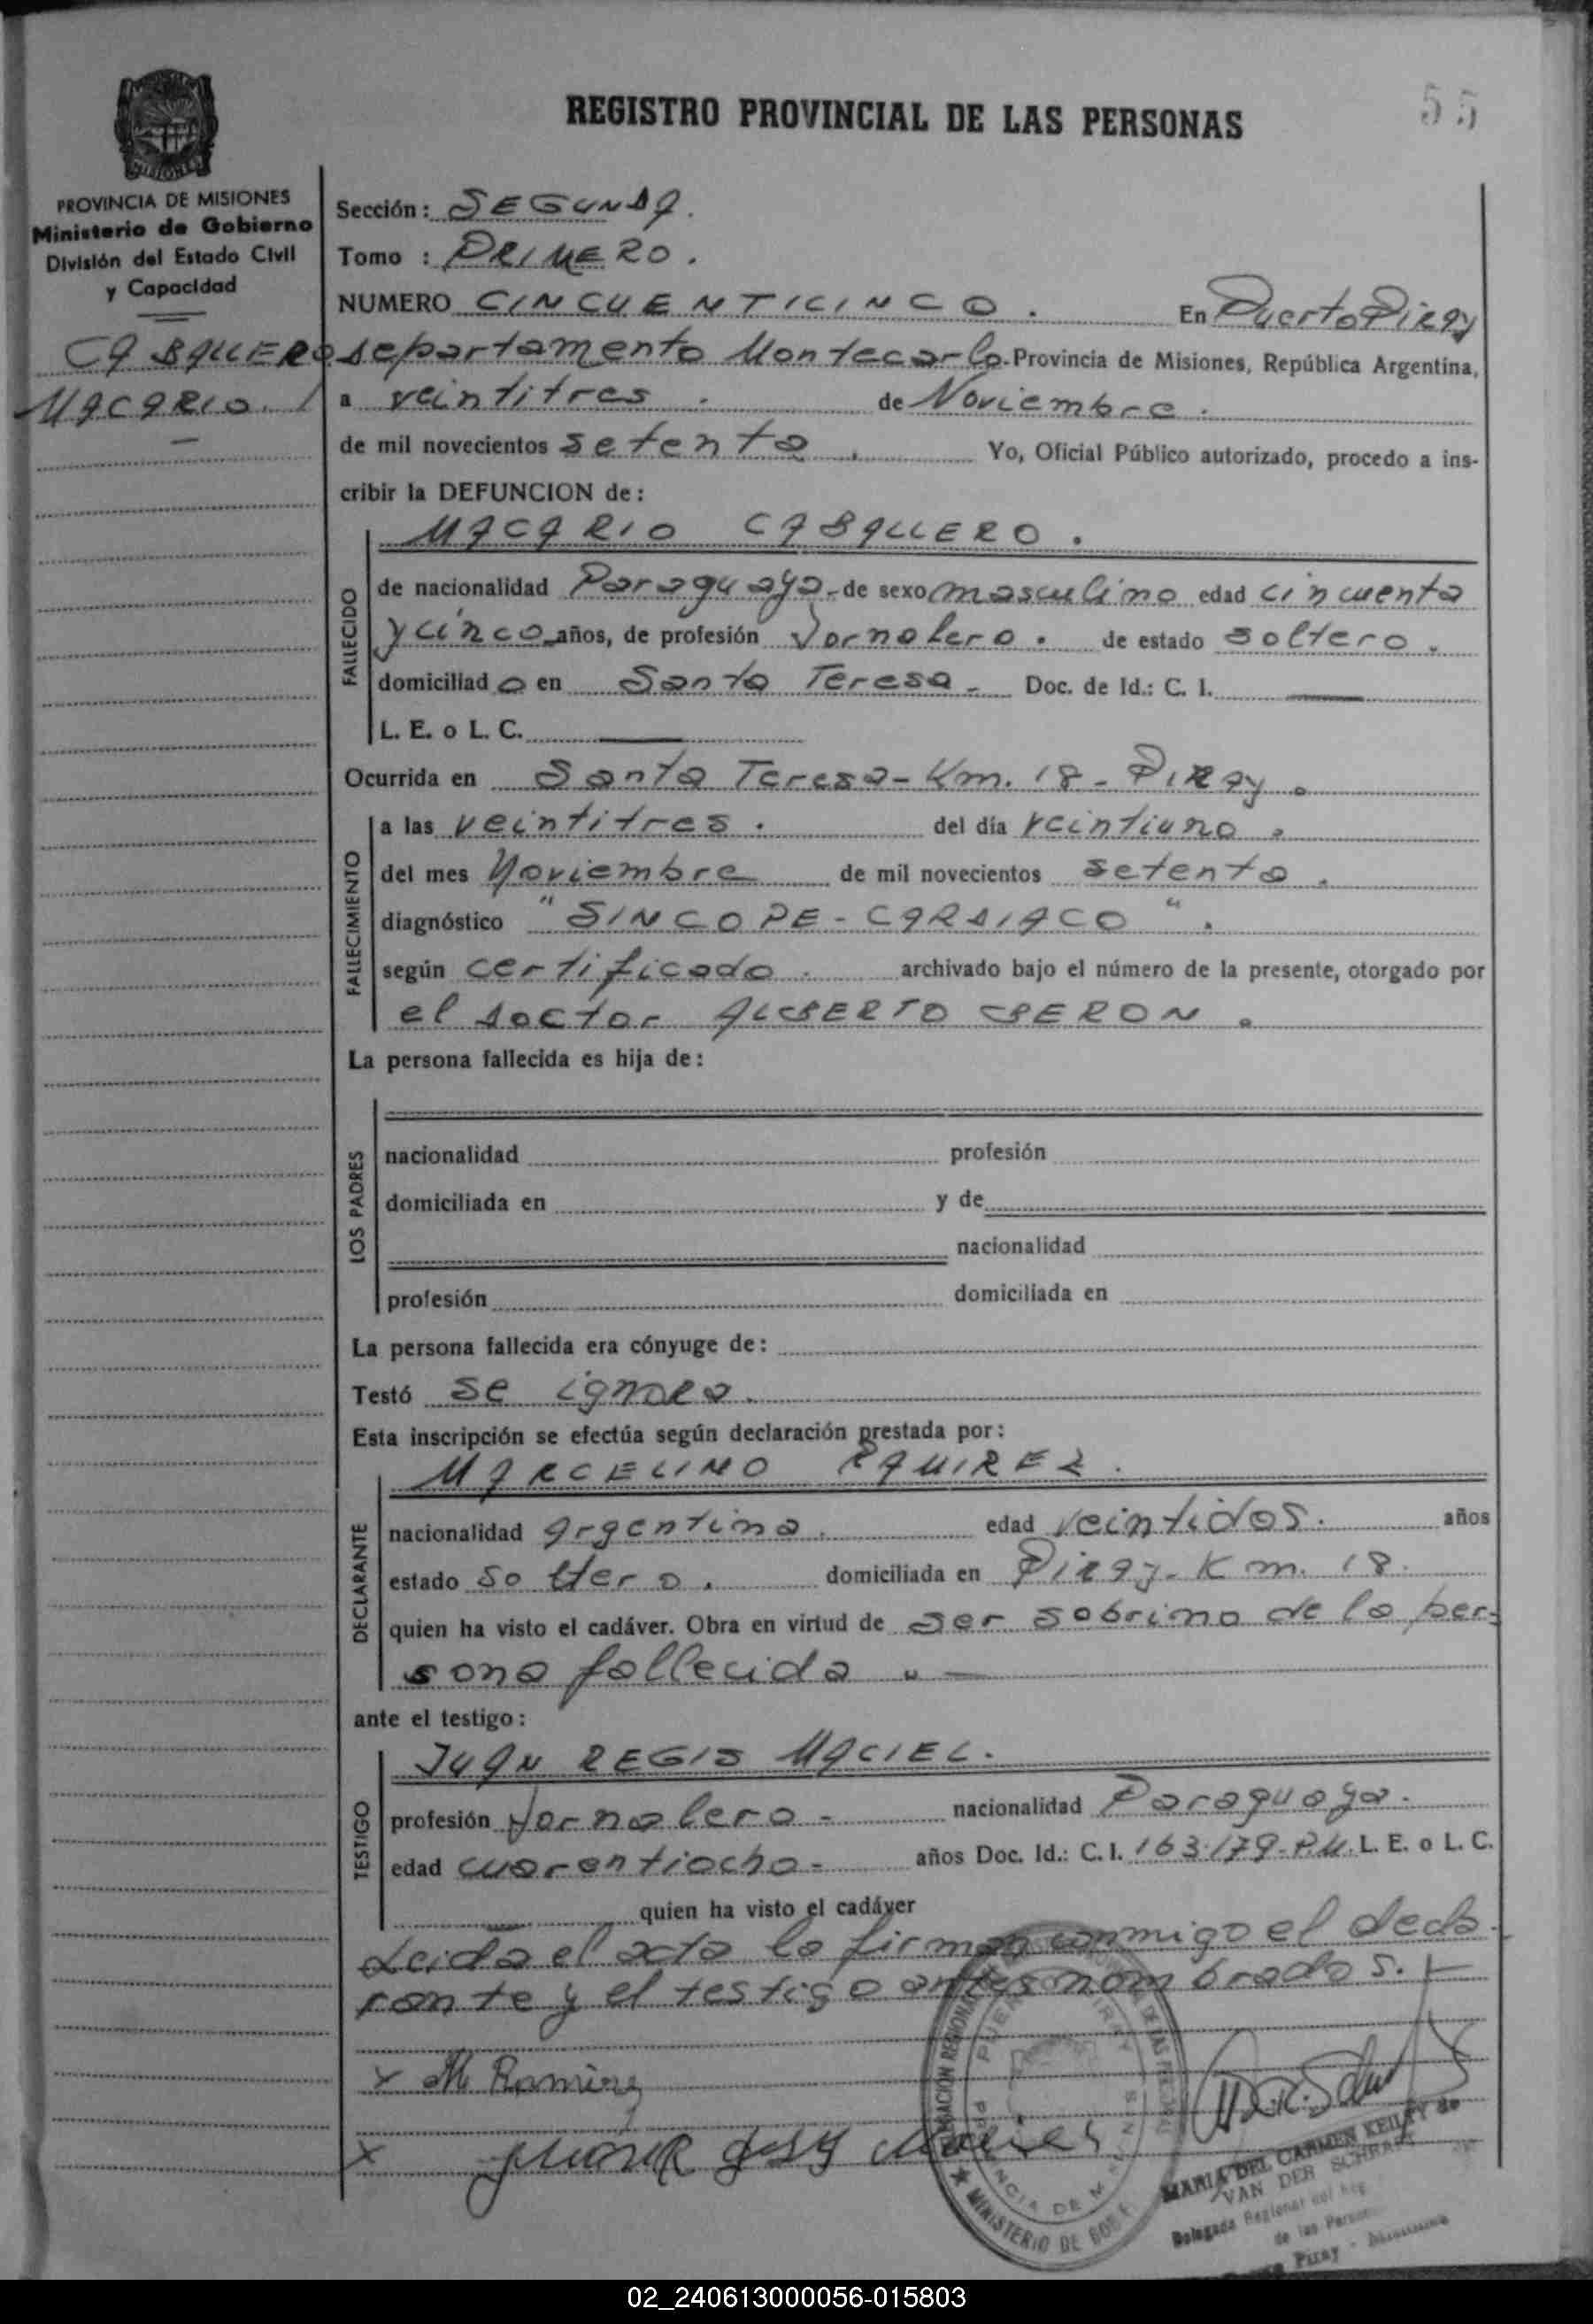 REGISTRO PROVINCIAL DE LAS PERSONAS
55
MISIONES
PROVINCIA DE MISIONES
Ministerio de Gobierno
División del Estado Civil
y Capacidad
CABALLERO
MACARIO.
Sección: SEGUNDA.
Tomo : PRIMERO.
NUMERO CINCUENTICINCO. En Puerto Piray
departamento Montecarlo. Provincia de Misiones, República Argentina,
a veintitres. de Noviembre.
de mil novecientos setenta. Yo, Oficial Público autorizado, procedo a ins-
cribir la DEFUNCION de:
MACARIO CABALLERO.
FALLECIDO
de nacionalidad Paraguaya- de sexo masculino edad cincuenta
y cinco años, de profesión Jornalero. de estado soltero.
domiciliad o en Santa Teresa- Doc. de Id.: C. I. ———
L. E. o L. C. ———
Ocurrida en Santa Teresa- Km. 18- Piray.
FALLECIMIENTO
a las veintitres. del día veintiuno.
del mes Noviembre de mil novecientos setenta.
diagnóstico "SINCOPE-CARDIACO".
según certificado. archivado bajo el número de la presente, otorgado por
el doctor ALBERTO BERON.
La persona fallecida es hija de:
LOS PADRES
nacionalidad profesión
domiciliada en y de
nacionalidad
profesión domiciliada en
La persona fallecida era cónyuge de:
Testó se ignora.
Esta inscripción se efectúa según declaración prestada por:
MARCELINO RAMIREZ.
DECLARANTE
nacionalidad argentina. edad veintidos. años
estado soltero. domiciliada en Piray- Km. 18.
quien ha visto el cadáver. Obra en virtud de ser sobrino de la per-
sona fallecida.-
ante el testigo:
JUAN REGIS MACIEL.
TESTIGO
profesión Jornalero- nacionalidad Paraguaya.
edad cuarentiocho- años Doc. Id.: C. I. 163.179-P.M. L. E. o L. C.
quien ha visto el cadáver
Leida el acta la firman conmigo el decla-
rante y el testigo antes nombrados.
x M Ramirez
x
MINISTERIO DE GOB
MARIA DEL CARMEN KEILTY de
VAN DER
Delegada Regional del Reg
de las Person
PIRAY - Misiones
02_240613000056-015803